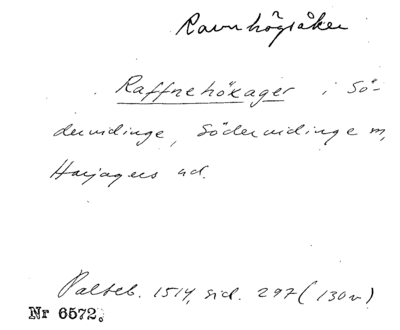 Ravnhögsåker
Raffnehökager i Sö-
dervidinge, Södervidinge sn,
Harjagers hd.
Palteb. 1514, sid. 297 (130v)
Nr 6572.